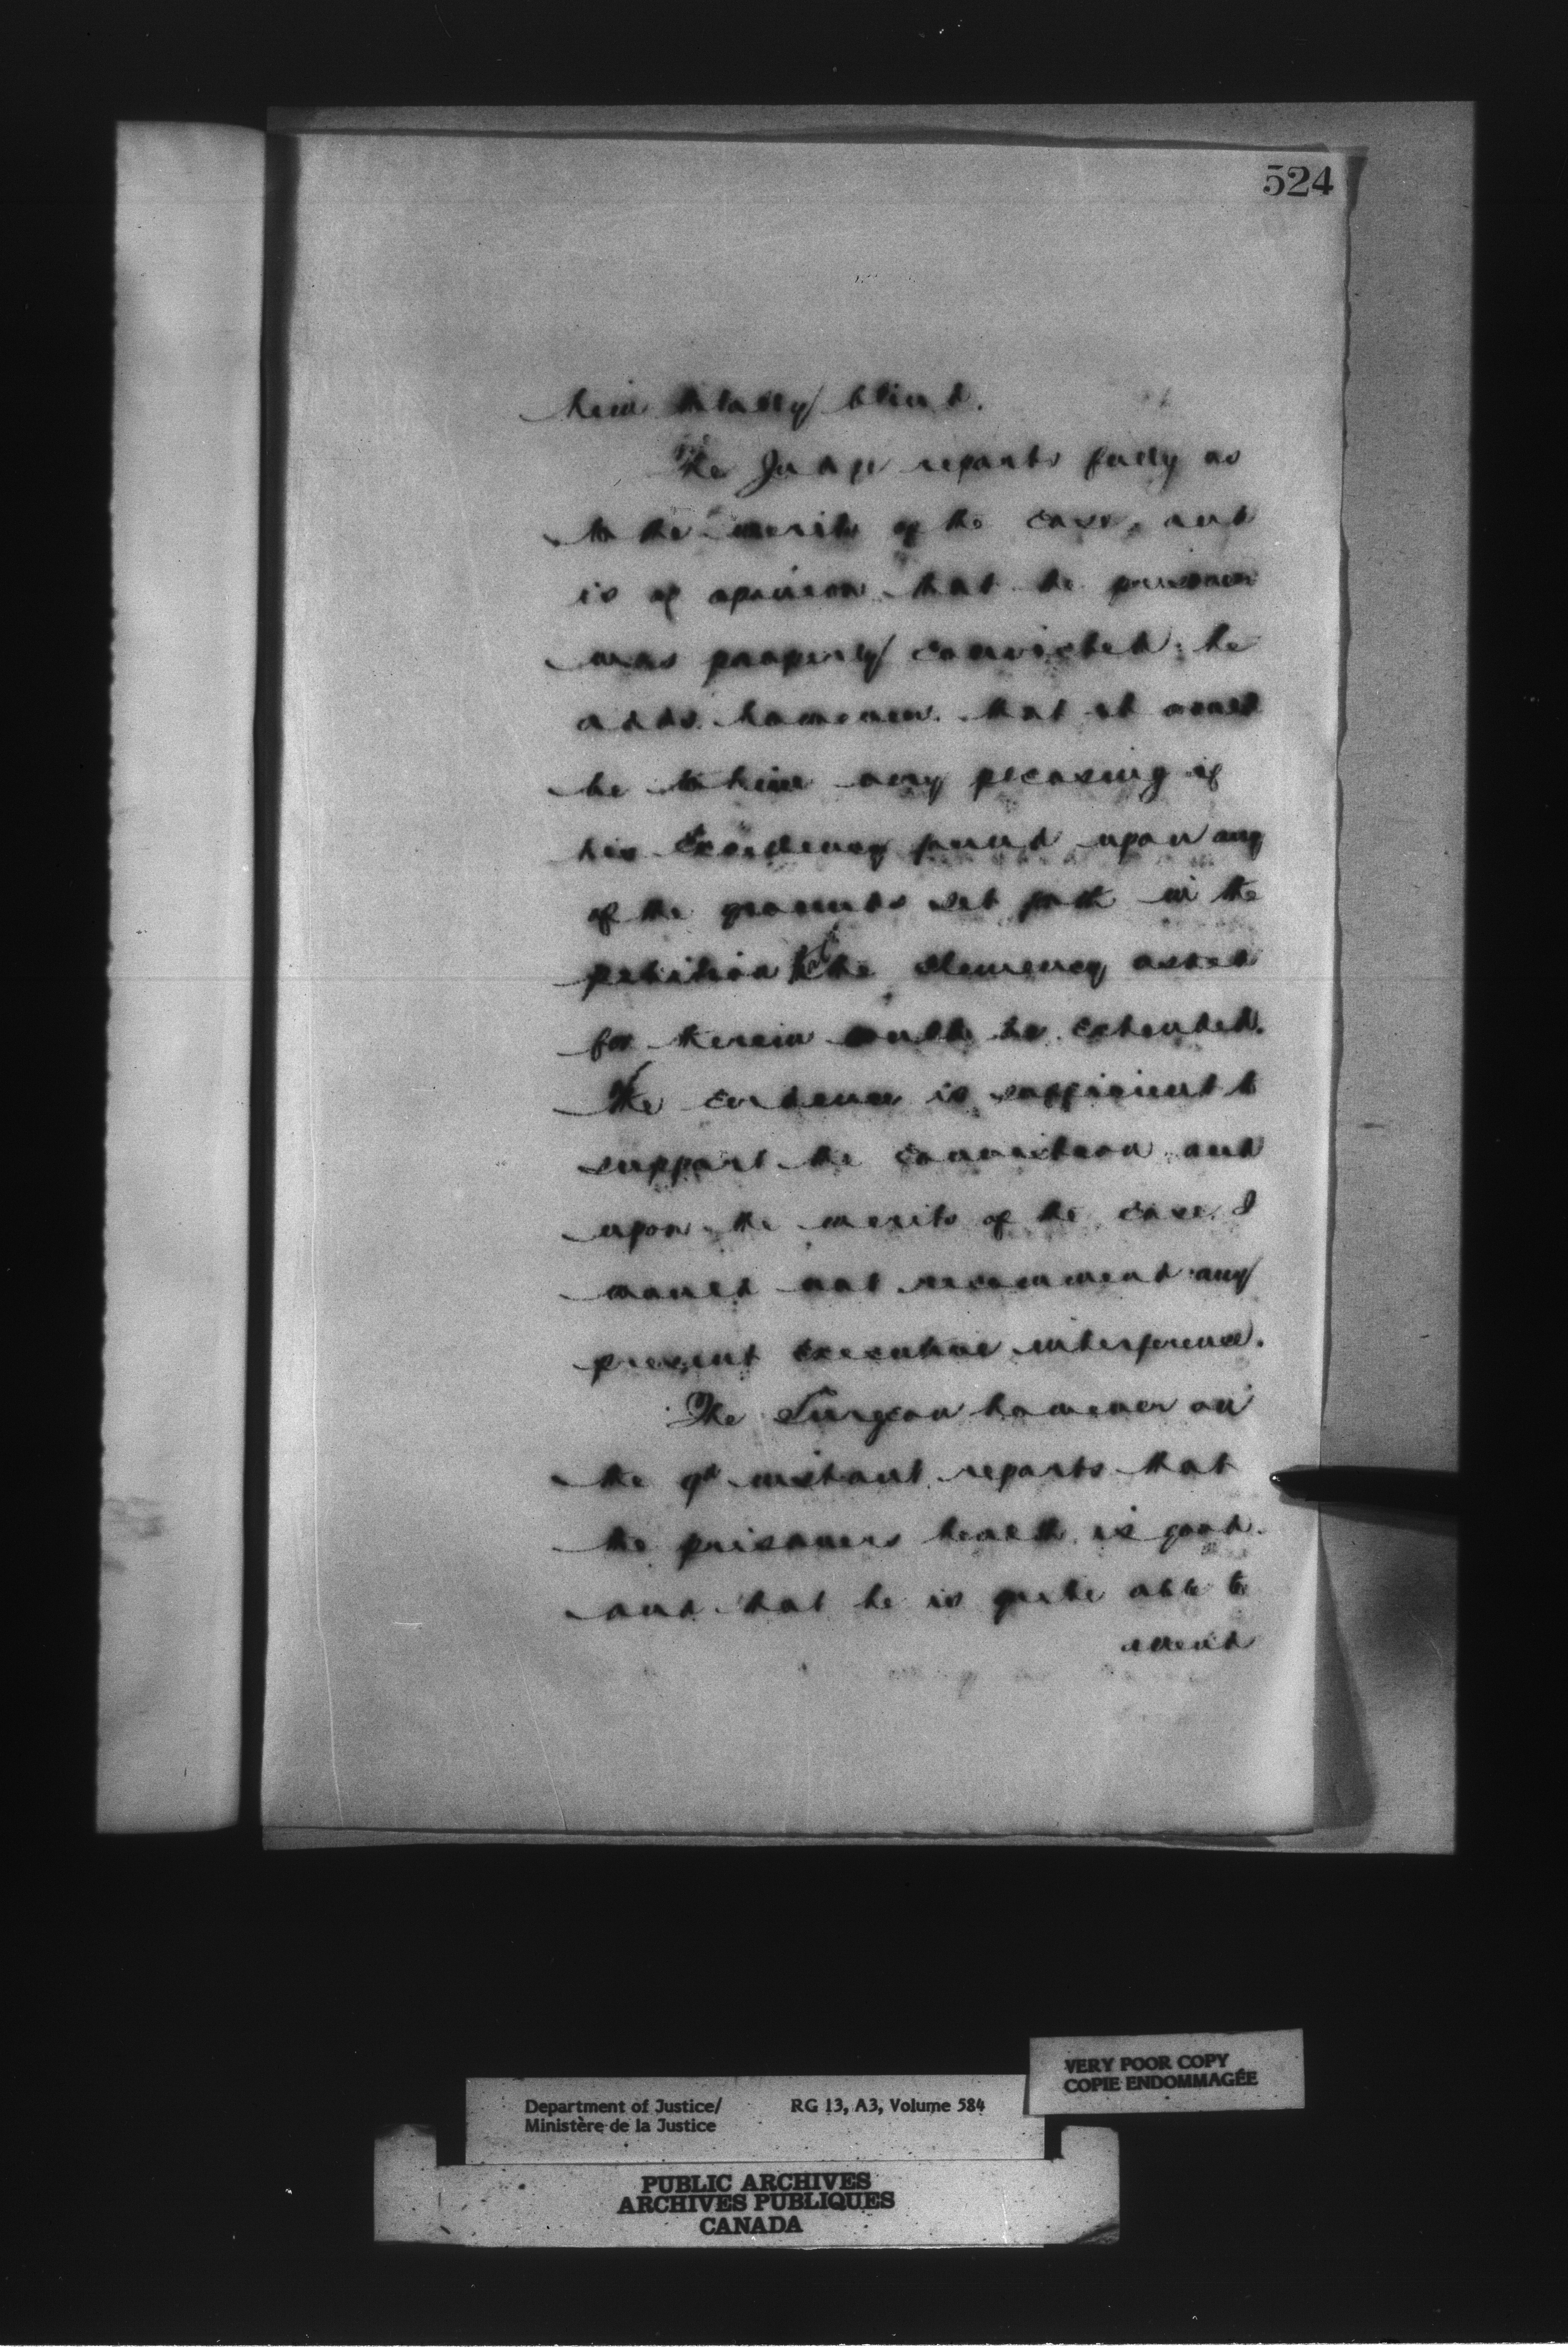 524
him totally blind.
The Judge reports fully as
to the merits of the case, and
is of opinion that the prisoner
was properly convicted: he
adds however that it would
be to him very pleasing if
his Excellency found upon any
of the grounds set forth in the
petition that the clemency asked
for therein could be extended.
The evidence is sufficient to
support the conviction and
upon the merits of the case I
would not recommend any
present Executive interference.
The Surgeon however on
the 9th instant reports that
the prisoners health is good
and that he is quite able to
attend
Department of Justice/ RG 13, A3, Volume 584
Ministère de la Justice
VERY POOR COPY
COPIE ENDOMMAGÉE
PUBLIC ARCHIVES
ARCHIVES PUBLIQUES
CANADA